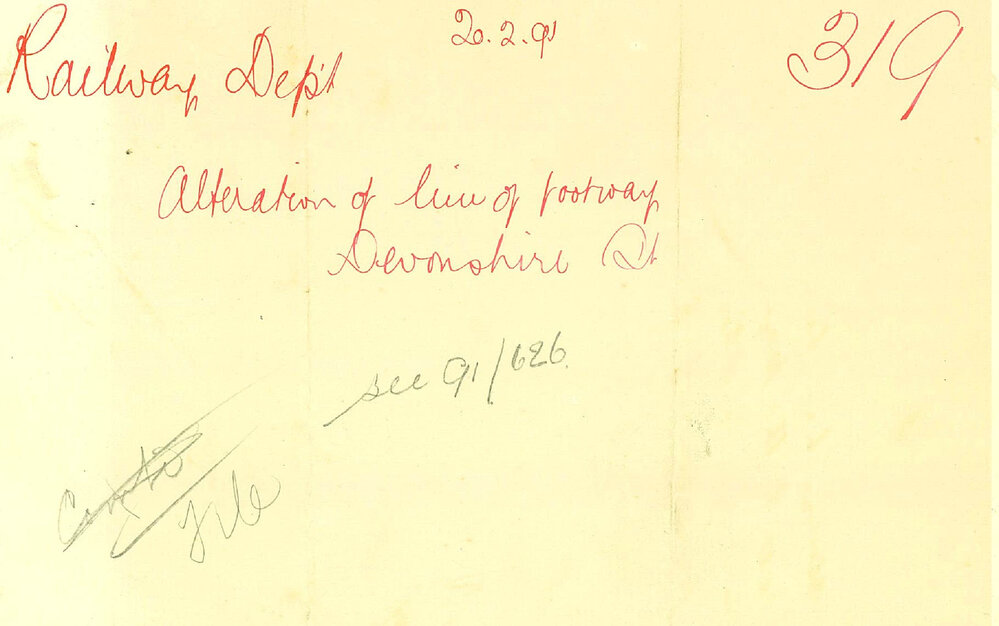 20.2.91
Railway Dep't 319
Alteration of line of footway
Devonshire St
see 91/626.
File